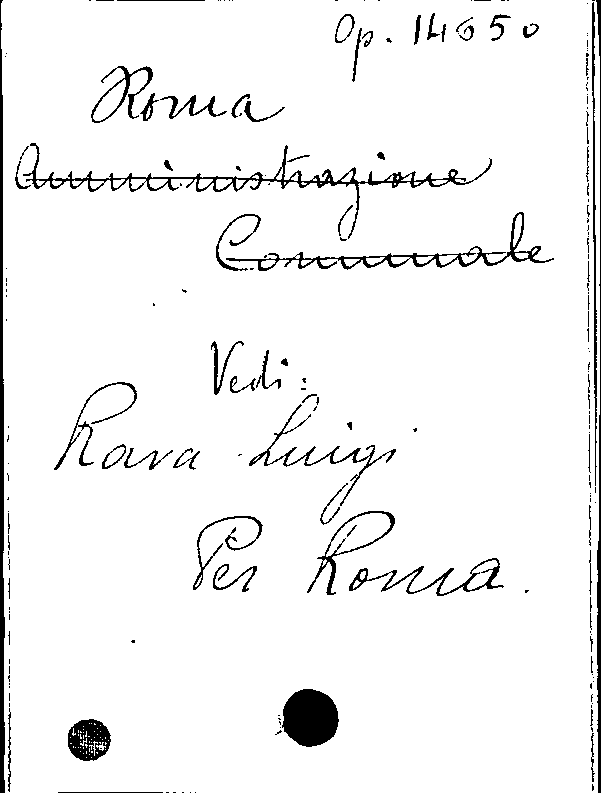 Op. 14650
Roma
Amministrazione
Comunale
Vedi:
Rava Luigi
Per Roma.